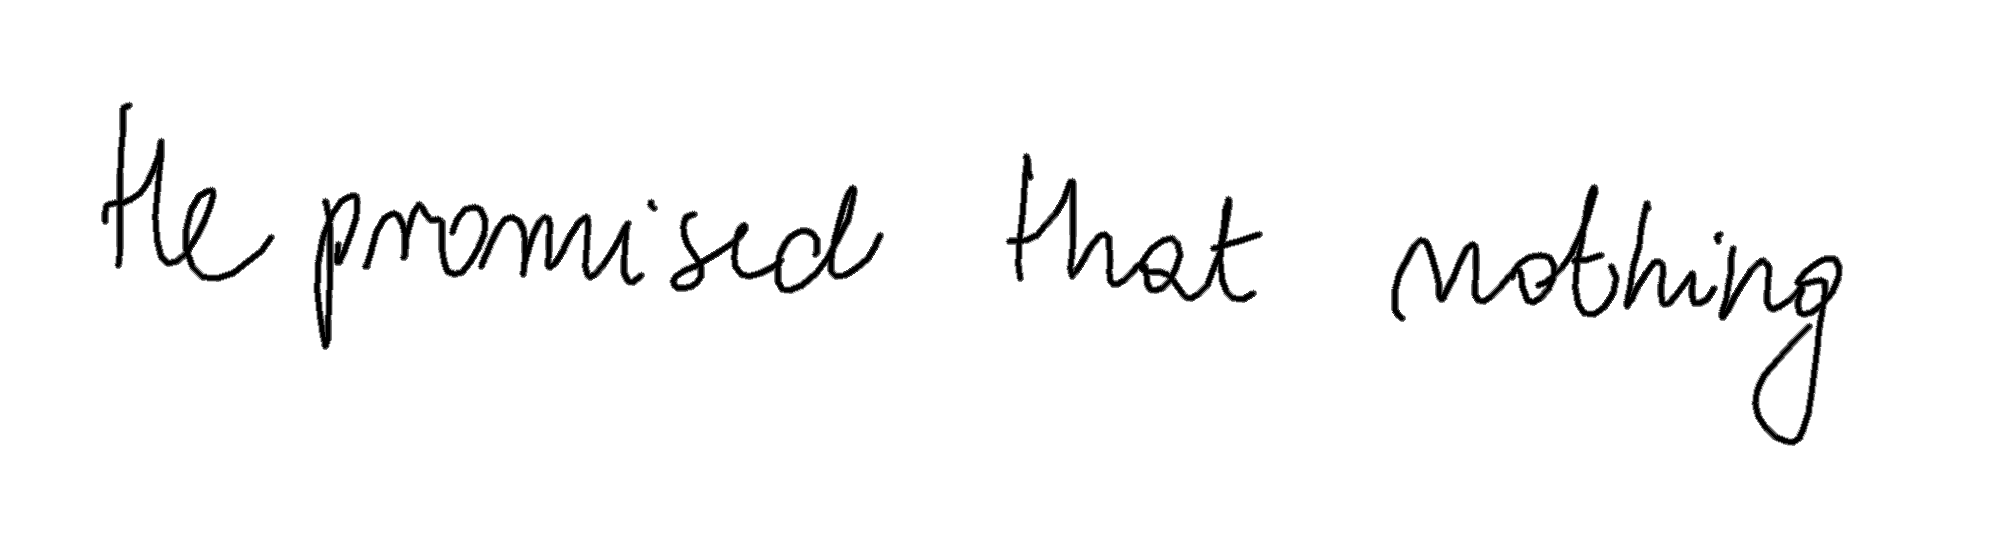 He promised that nothing